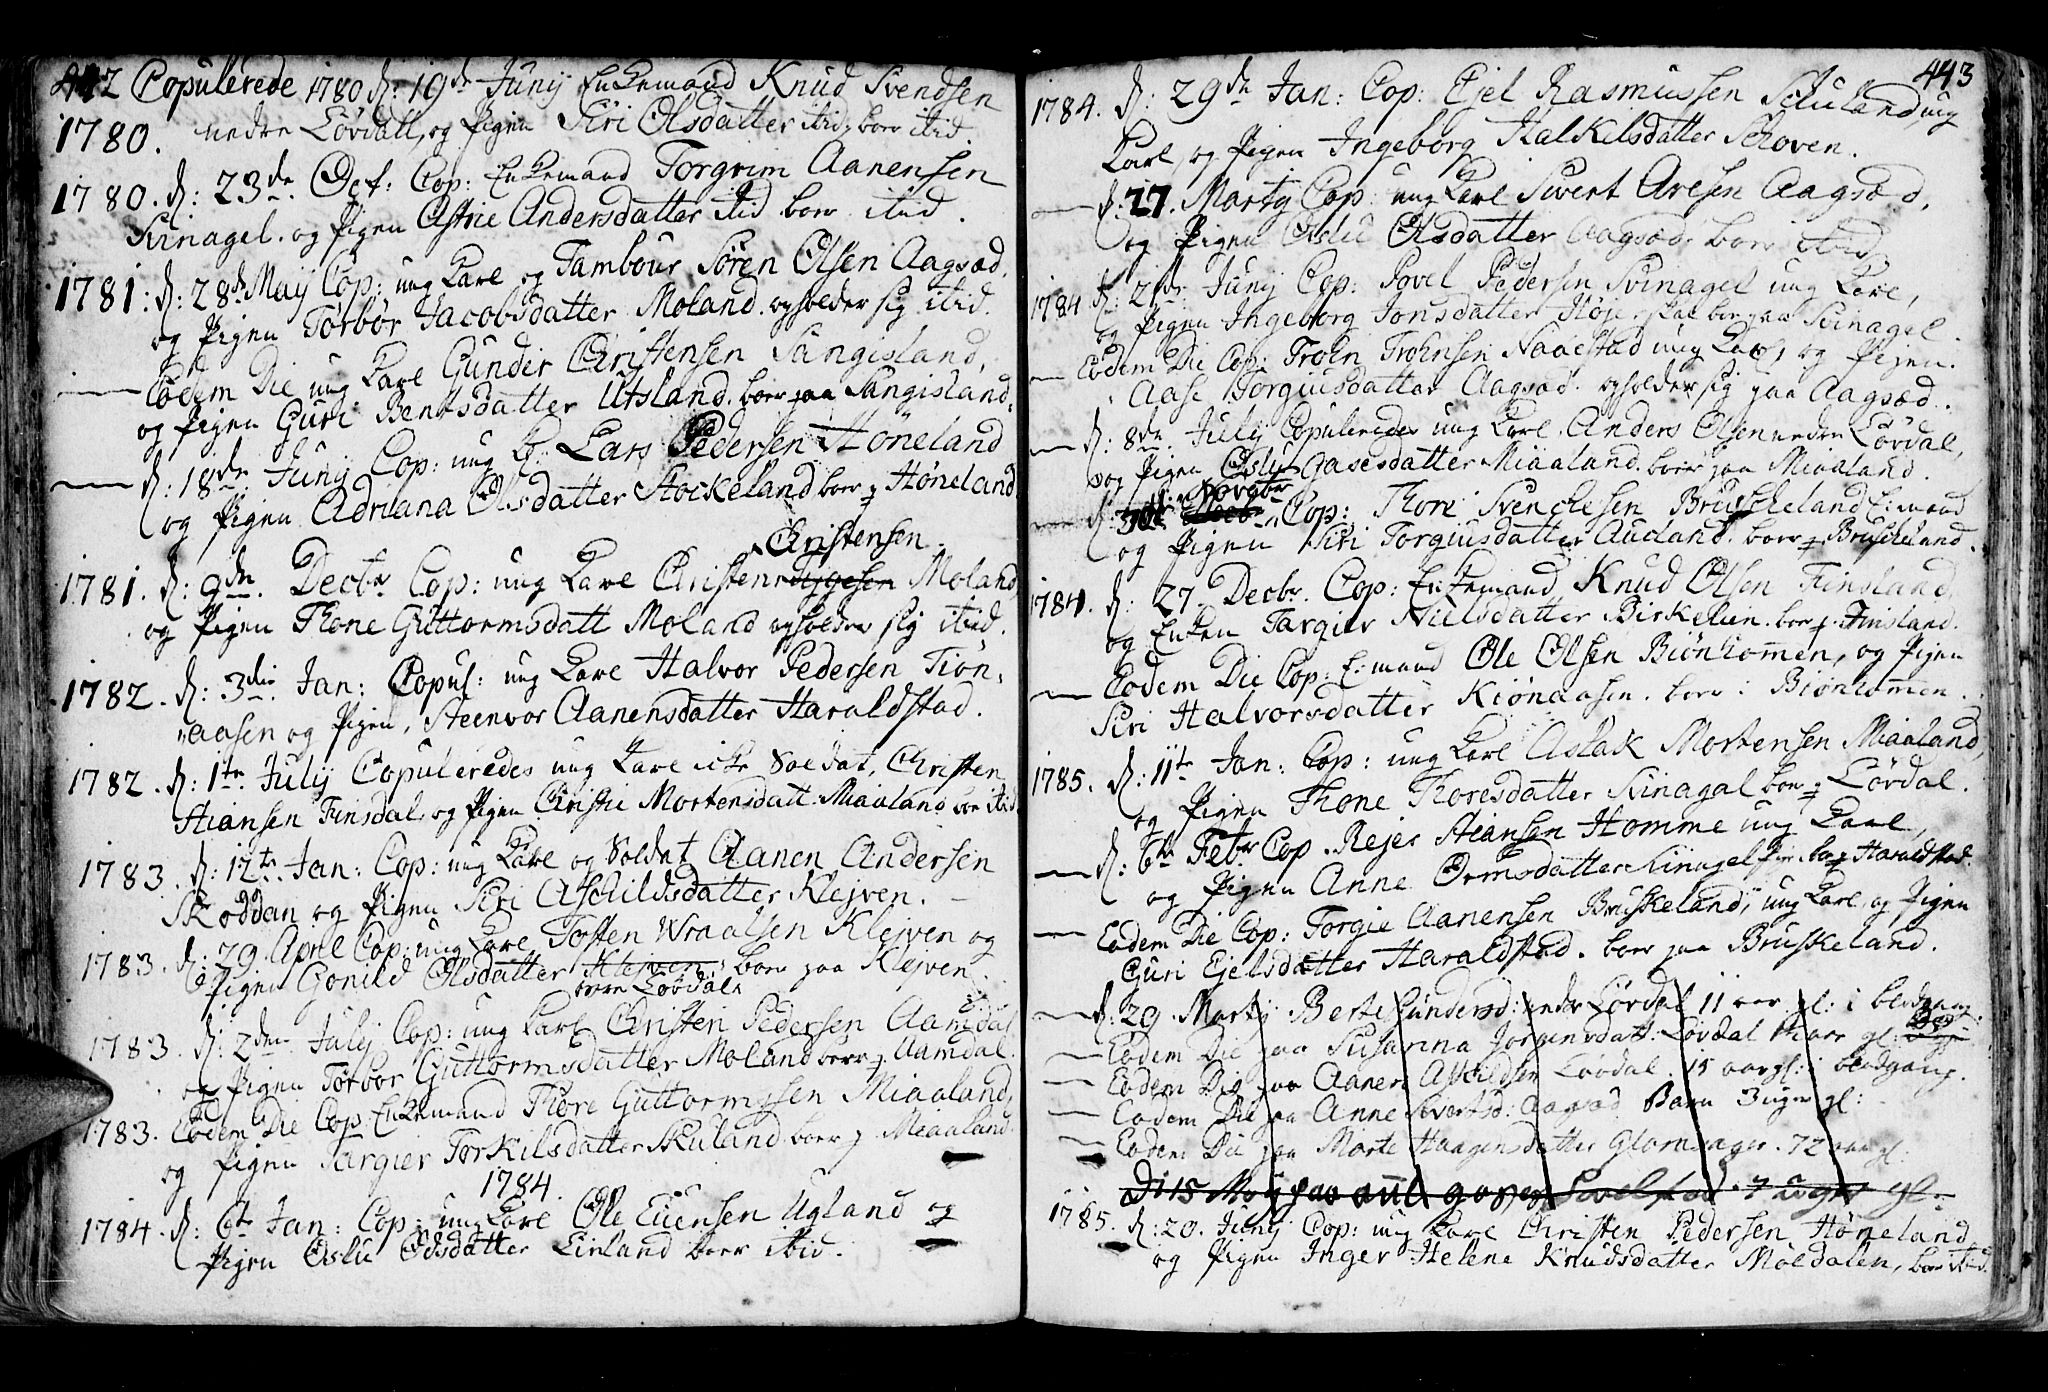 442 Copulerede 1780 d: 19de Junij Enkemand Knud Svendsen
1780. nedre Løvdall, og Pigen Siri Olsdatter ibid, boer ibid.
1780. d: 23de Oct: Cop: Enkemand Torgrim Aanensen
Svinagel. og Pigen Astrie Andersdatter ibid boer ibid.
1781: d: 28de Maij Cop: ung Karl og Tambour Søren Olsen Aagsad,
og Pigen Torbor Jacobsdatter Moland. opholder sig ibid.
Eodem Die ung Karl Gunder Christensen Sangisland,
og Pigen Guri Bentsdatter Utsland. boer paa Sangisland.
d: 18de Junij Cop: ung K: Lars Pedersen Høneland
og Pigen Adriana Olsdatter Stockeland boer p Høneland
Christensen
1781. d: 9de. Decbr Cop: ung Karl Christen Moland
og Pigen Thone Guttormsdatt Moland opholder sig ibid.
1782. d: 3die Jan: Copul: ung Karl Halvor Pedersen Tiøn,
aasen og Pigen, Steenvor Aanensdatter Haraldstad.
1782. d: 1te Julij Copuleredes ung Karl icke Soldat, Christen
Stiansen Finsdal, og Pigen Christie Mortensdatt Miaaland boe ibid
1783. d: 12te Jan: Cop: ung Karl og Soldat Aanen Andersen
Skoddan og Pigen Siri Aschildsdatter Klejven.
1783. d: 29. April Cop: ung Karl Tosten Wraalsen Klejven og
Pigen Gonild Olsdatter Klejven, boer paa Klejven.
Løvdal
1783. d: 2den Julij Cop: ung Karl Christen Pedersen Aamdal
og Pigen Torbor Guttormsdatter Moland boer p. Aamdal.
1783. Eodem Die Cop Enkemand Thore Guttormssen Miaaland,
og Pigen Targier Torkilsdatter Skuland boer p Miaaland.
1784.
1784. d: 6te Jan: Cop: ung Karl Ole Evensen Ugland og
Pigen Oslu Edsdatter Linland boer ibid.
443
1784. d: 29de Jan: Cop: Ejel Rasmussen Schuland, ung
Karl, og Pigen Ingeborg Halkelsdatter Schoven.
d: 27. Martij Cop: ung Karl Sivert Aresen Aagsad,
og Pigen Oslu Olsdatter Aagsad. boer ibid
1784 d: 21de Junij Cop: Povel Pedersen Svinagel ung Karl,
og Pigen Ingeborg Jonsdatter Høje, skal boe paa Svinagel
Eodem Die Cop: Trohn Trohnsen Naaestad ung Karl, og Pigen.
Aase Torgiusdatter Aagsad. opholder sig paa Aagsad.
d: 8de Julij Copuleredes ung Karl. Anders Olsen nedre Løvdal,
og Pigen Oslu Aasesdatter Miaaland. boer paa Miaaland.
Novgbr
d: 30te Cop: Thore Svenchesen Bruskeland E: mand
og Pigen Siri Torgiusdatter Audland. boer p Bruskeland.
1784. d: 27. Decbr. Cop: Enkemand Knud Olsen Finsland,
og Enken Targier Nielsdatter Birkelien. boer p. Finsland.
Eodem Die Cop: E: mand Ole Olsen Biønkommen, og Pigen
Siri Halvorsdatter Kiønaasen. boer i Biønkommen.
1785. d: 11te Jan: Cop: ung Karl Aslak Mortensen Miaaland,
og Pigen Thone Thoresdatter Svinagal boer p Løvdal.
d: 6te Febr Cop. Rejer Stiansen Homme ung Karl,
og Pigen Anne Ormsdatter Svinagel boe p Haraldstad.
Eodem Die Cop: Torgie Aanensen Bruskeland, ung Karl, og Pigen
Guri Ejelsdatter Haraldstad. boer paa Bruskeland.
d: 29. Martij Berte Gundersd: nedr Løvdal 11 aar gl: i blodgang.
Eodem Die paa Susanna Jørgensdatt: Løvdal aar gl:
Eodem Die paa Aanen Aschildsen Løvdal. 15 aar gl: i blodgang.
Eodem Die paa Anne Sivertsd: Aagsad Barn 3 uger gl:
Eodem Die paa Marte Haagensdatter Glomsager. 72 aar gl:
Di 15 Maij paa 7 uger gl:
1785. d: 20. Junij Cop: ung Karl Christen Pedersen Høneland
og Pigen Inger Helene Knudsdatter Moldalen, boer ibid.